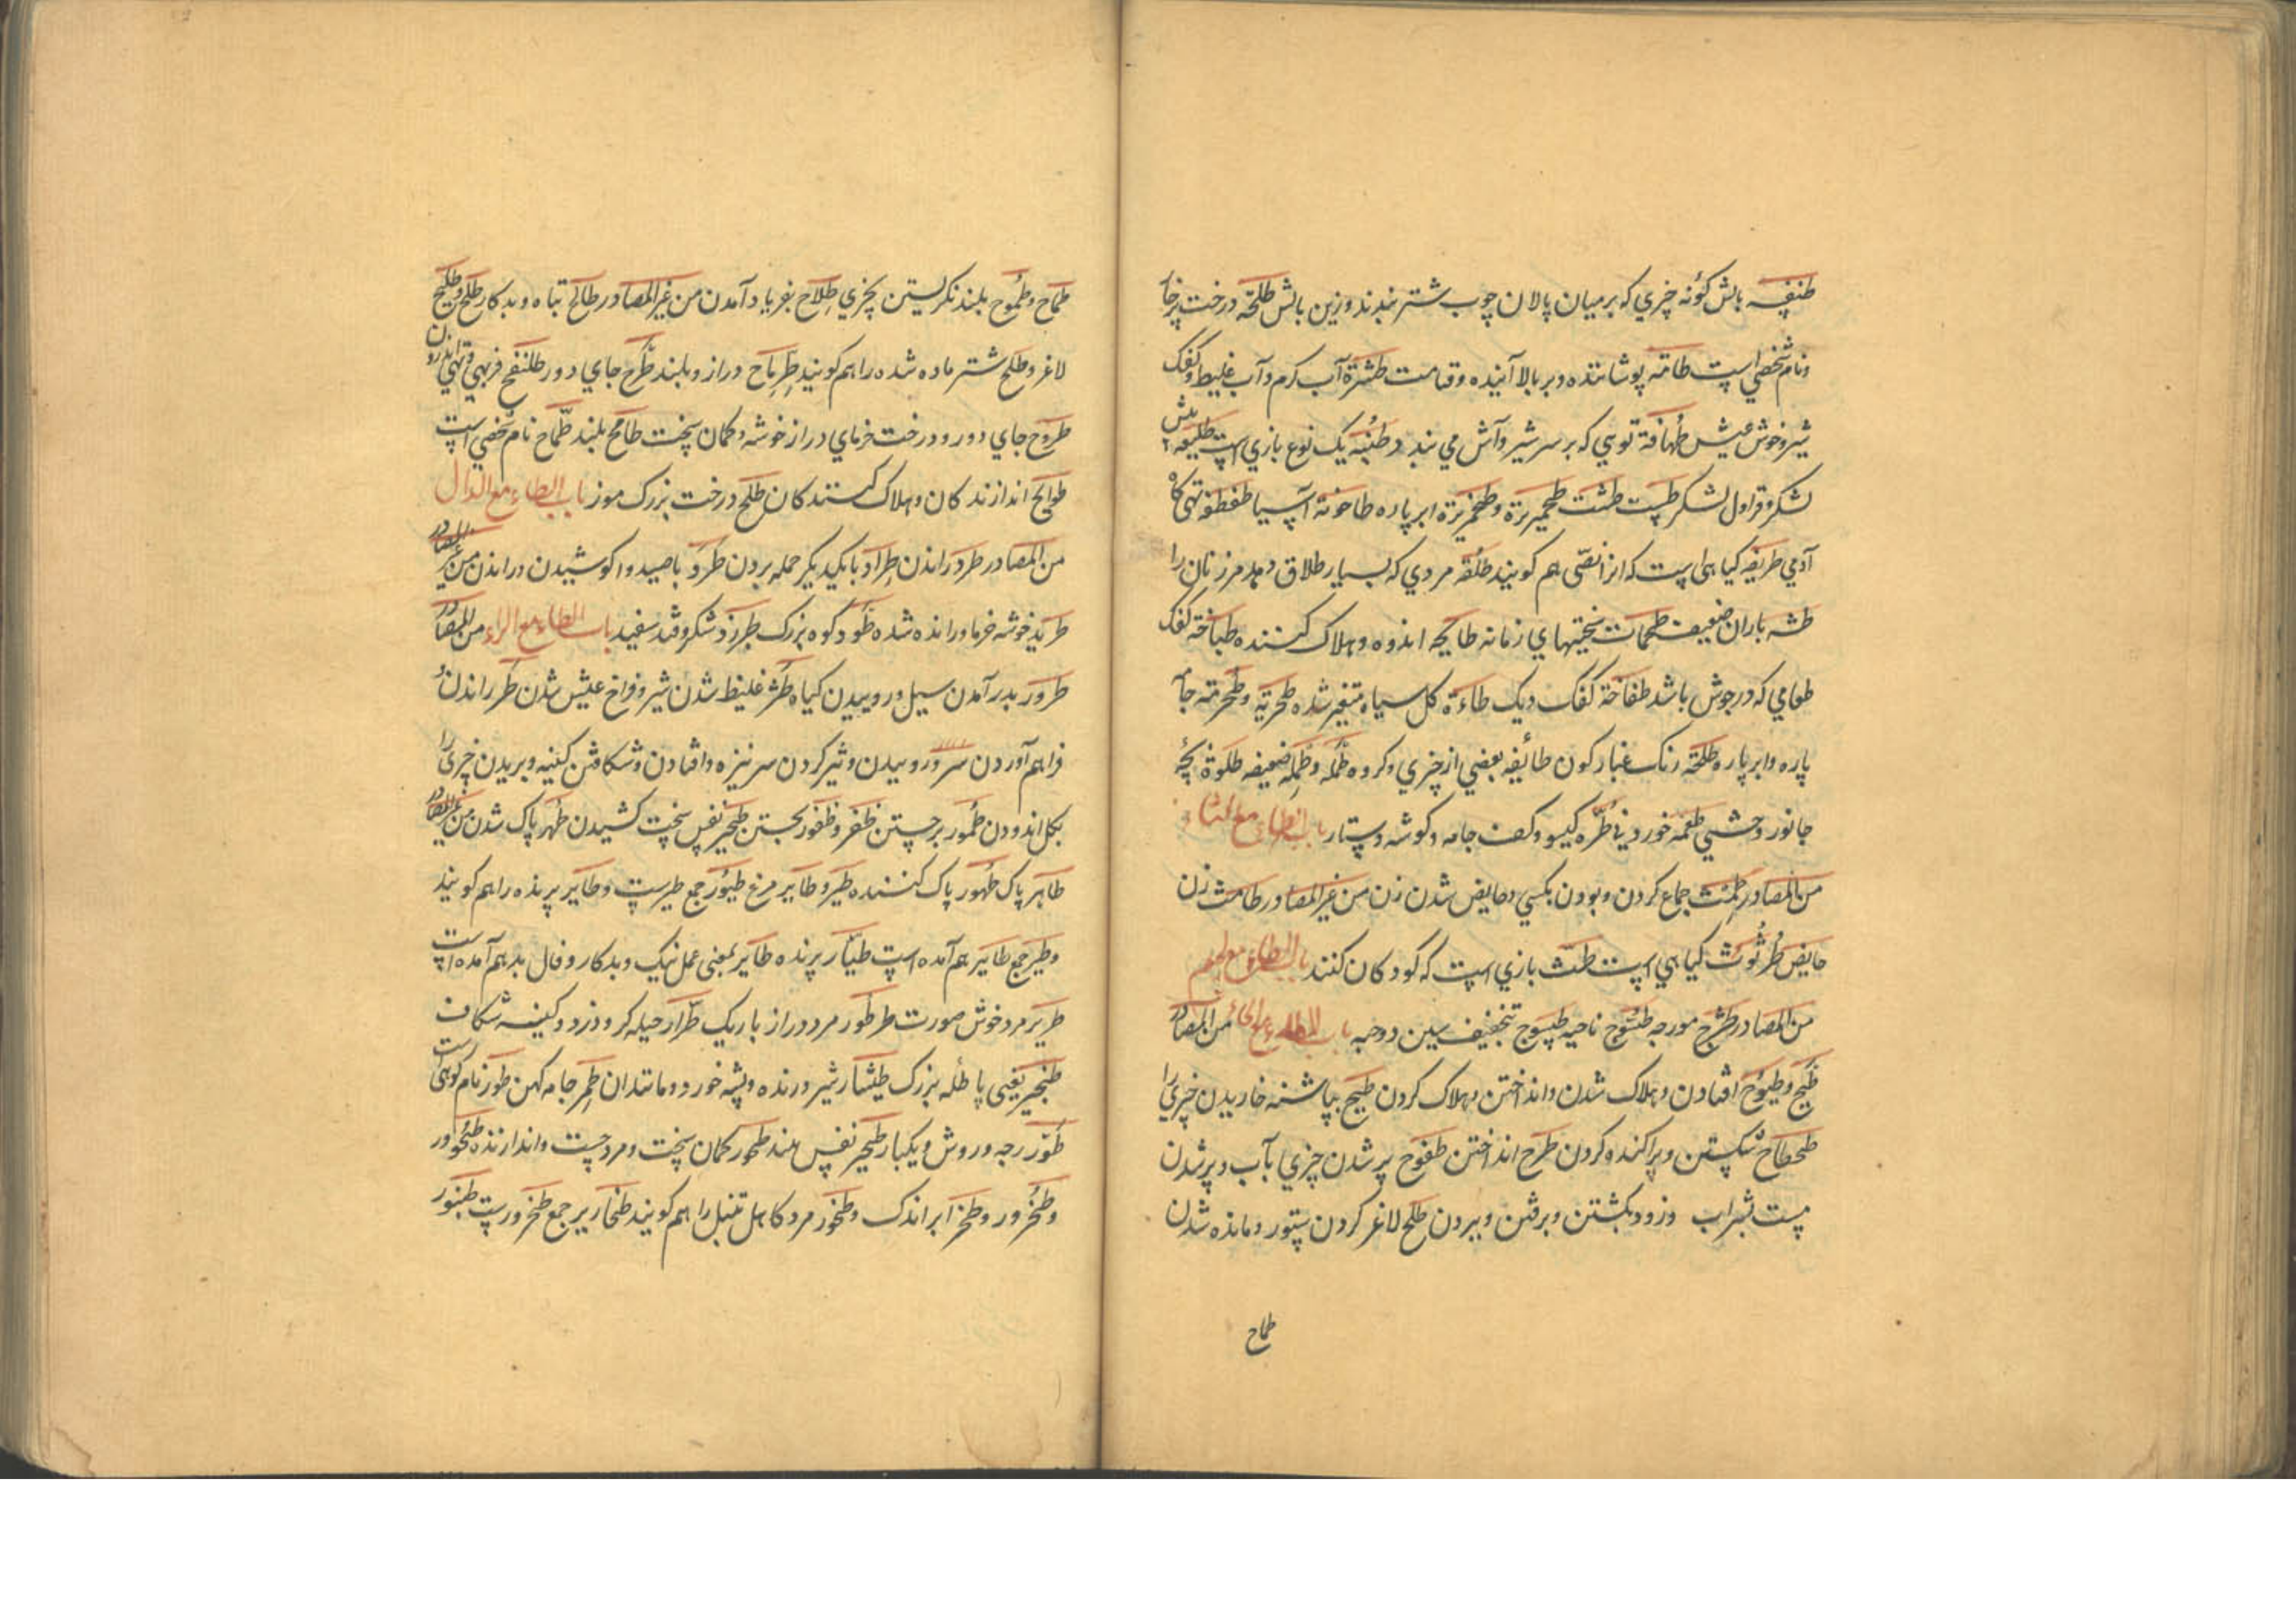 طنفسه بالش کونه چیزی که بر میان پالان چوب شتر بندند و زین بالش طلحه درخت پرخار
و نام شخصی است طامه پوشاننده و بر بالا آینده و قیامت طثرة آب کرم و آب غلیظ و کفک
شیر و خوش عیش طهافة توبی که بر سر شیر و آش می بندد طبنه یک نوع بازی است طلیعه پیش
لشکر و قراول لشکر طست طشت طحمریرة و طخمریرة ابر پاره طاحونة آسیا طفطفه تهی کاه
آدمی طریفه کیاهی است که انرا نصی هم کویند طلقه مردی که بسیار طلاق دهد مر زنان را
طشه باران ضعیف طحمات سختیهای زمانه طایحه اندوه و هلاک کننده طباخة کفک
طعامی که در جوش باشد طفاحة کفک دیک طاءة کل سیاه متغیر شده طحربة و طحرمته جامه
پاره و ابر پاره طلحة رنک غبار کون طائفه بعضی از چیزی و کروه طمله و طمله ضعیفه طلوة بچهٔ
جانور وحشی طعمه خوردنی طره کیسو و کفت جامه و کوشه دستار باب الطاء مع الثاء
من المصادر طمث جماع کردن و بودن بکسی و حایض شدن زن من غیر المصادر طامث زن
حایض طرثوث کیاهی است طث بازی است که کودکان کنند باب الطاء مع الجیم
من المصادر طثرج مورچه طسوج ناحیه طسوج بتخفیف سین دو حبه باب الطاء مع الحاء من المصادر
طیح و طیوح افتادن و هلاک شدن و انداختن و هلاک کردن طیح بپاشنه خاریدن چیزی را
طحطاح شکستن و پراکنده کردن طرح انداختن طفوح پر شدن چیزی بآب و پر شدن
مست بشراب و زود بکشتن و برفتن و ببردن طلح لاغر کردن ستور و مانده شدن
طماح
طماح و طموح بلند نکریستن بچیزی طلاح بفریاد آمدن من غیر المصادر طالح تباه و بدکار طلح و طلیح
لاغر و طلح شتر ماده شده را هم کویند طرماح دراز و بلند طرح جای دور طلنفح فربهی و تهی اندرون
طروح جای دور و درخت خرمای دراز خوشه و کمان سخت طامح بلند طماح نام شخصی است
طوایح اندازندکان و هلاک کنندکان طلح درخت بزرک موز باب الطاء مع الدال
من المصادر طرد راندن طراد بایکدیکر حمله بردن طرد باصید واکوشیدن و راندن من غیر المصادر
طرید خوشه خرما و رانده شده طود کوه بزرک طبرزد شکر و قند سفید باب الطاء مع الراء من المصادر
طرور بدر آمدن سبیل و روییدن کیاه طثر غلیظ شدن شیر و فراخ عیش شدن طر راندن و
فراهم آوردن ستور و روییدن و تیز کردن سر نیزه و افتادن و شکافتن کنیه و بریدن چیزی را
بکل اندودن طمور برجستن طفر و طفور بجستن طحیر نفس سخت کشیدن طهر پاک شدن من غیر المصادر
طاهر پاک طهور پاک کننده طیر و طایر مرغ طیور جمع طیرست و طایر پرنده را هم کویند
و طیر جمع طایر هم آمده است طیار پرنده طایر بمعنی عمل نیک و بدکار و فال بد هم آمده است
طریر مرد خوش صورت طرطور مرد دراز باریک طرار حیله کر و دزد و کیسه شکاف
طنجیر یعنی پاطله بزرک طیثار شیر درنده و پشه خورد و مانند آن طمر جامه کهن طور نام کوهی است
طور رجه و روش و یکبار طحیر نفس بلند طحور کمان سخت و مرد چست و اندازنده طحرور
و طخرور و طخر ابر اندک و طخور مرد کاهل تنبل را هم کویند طخاریر جمع طخرورست طنبور